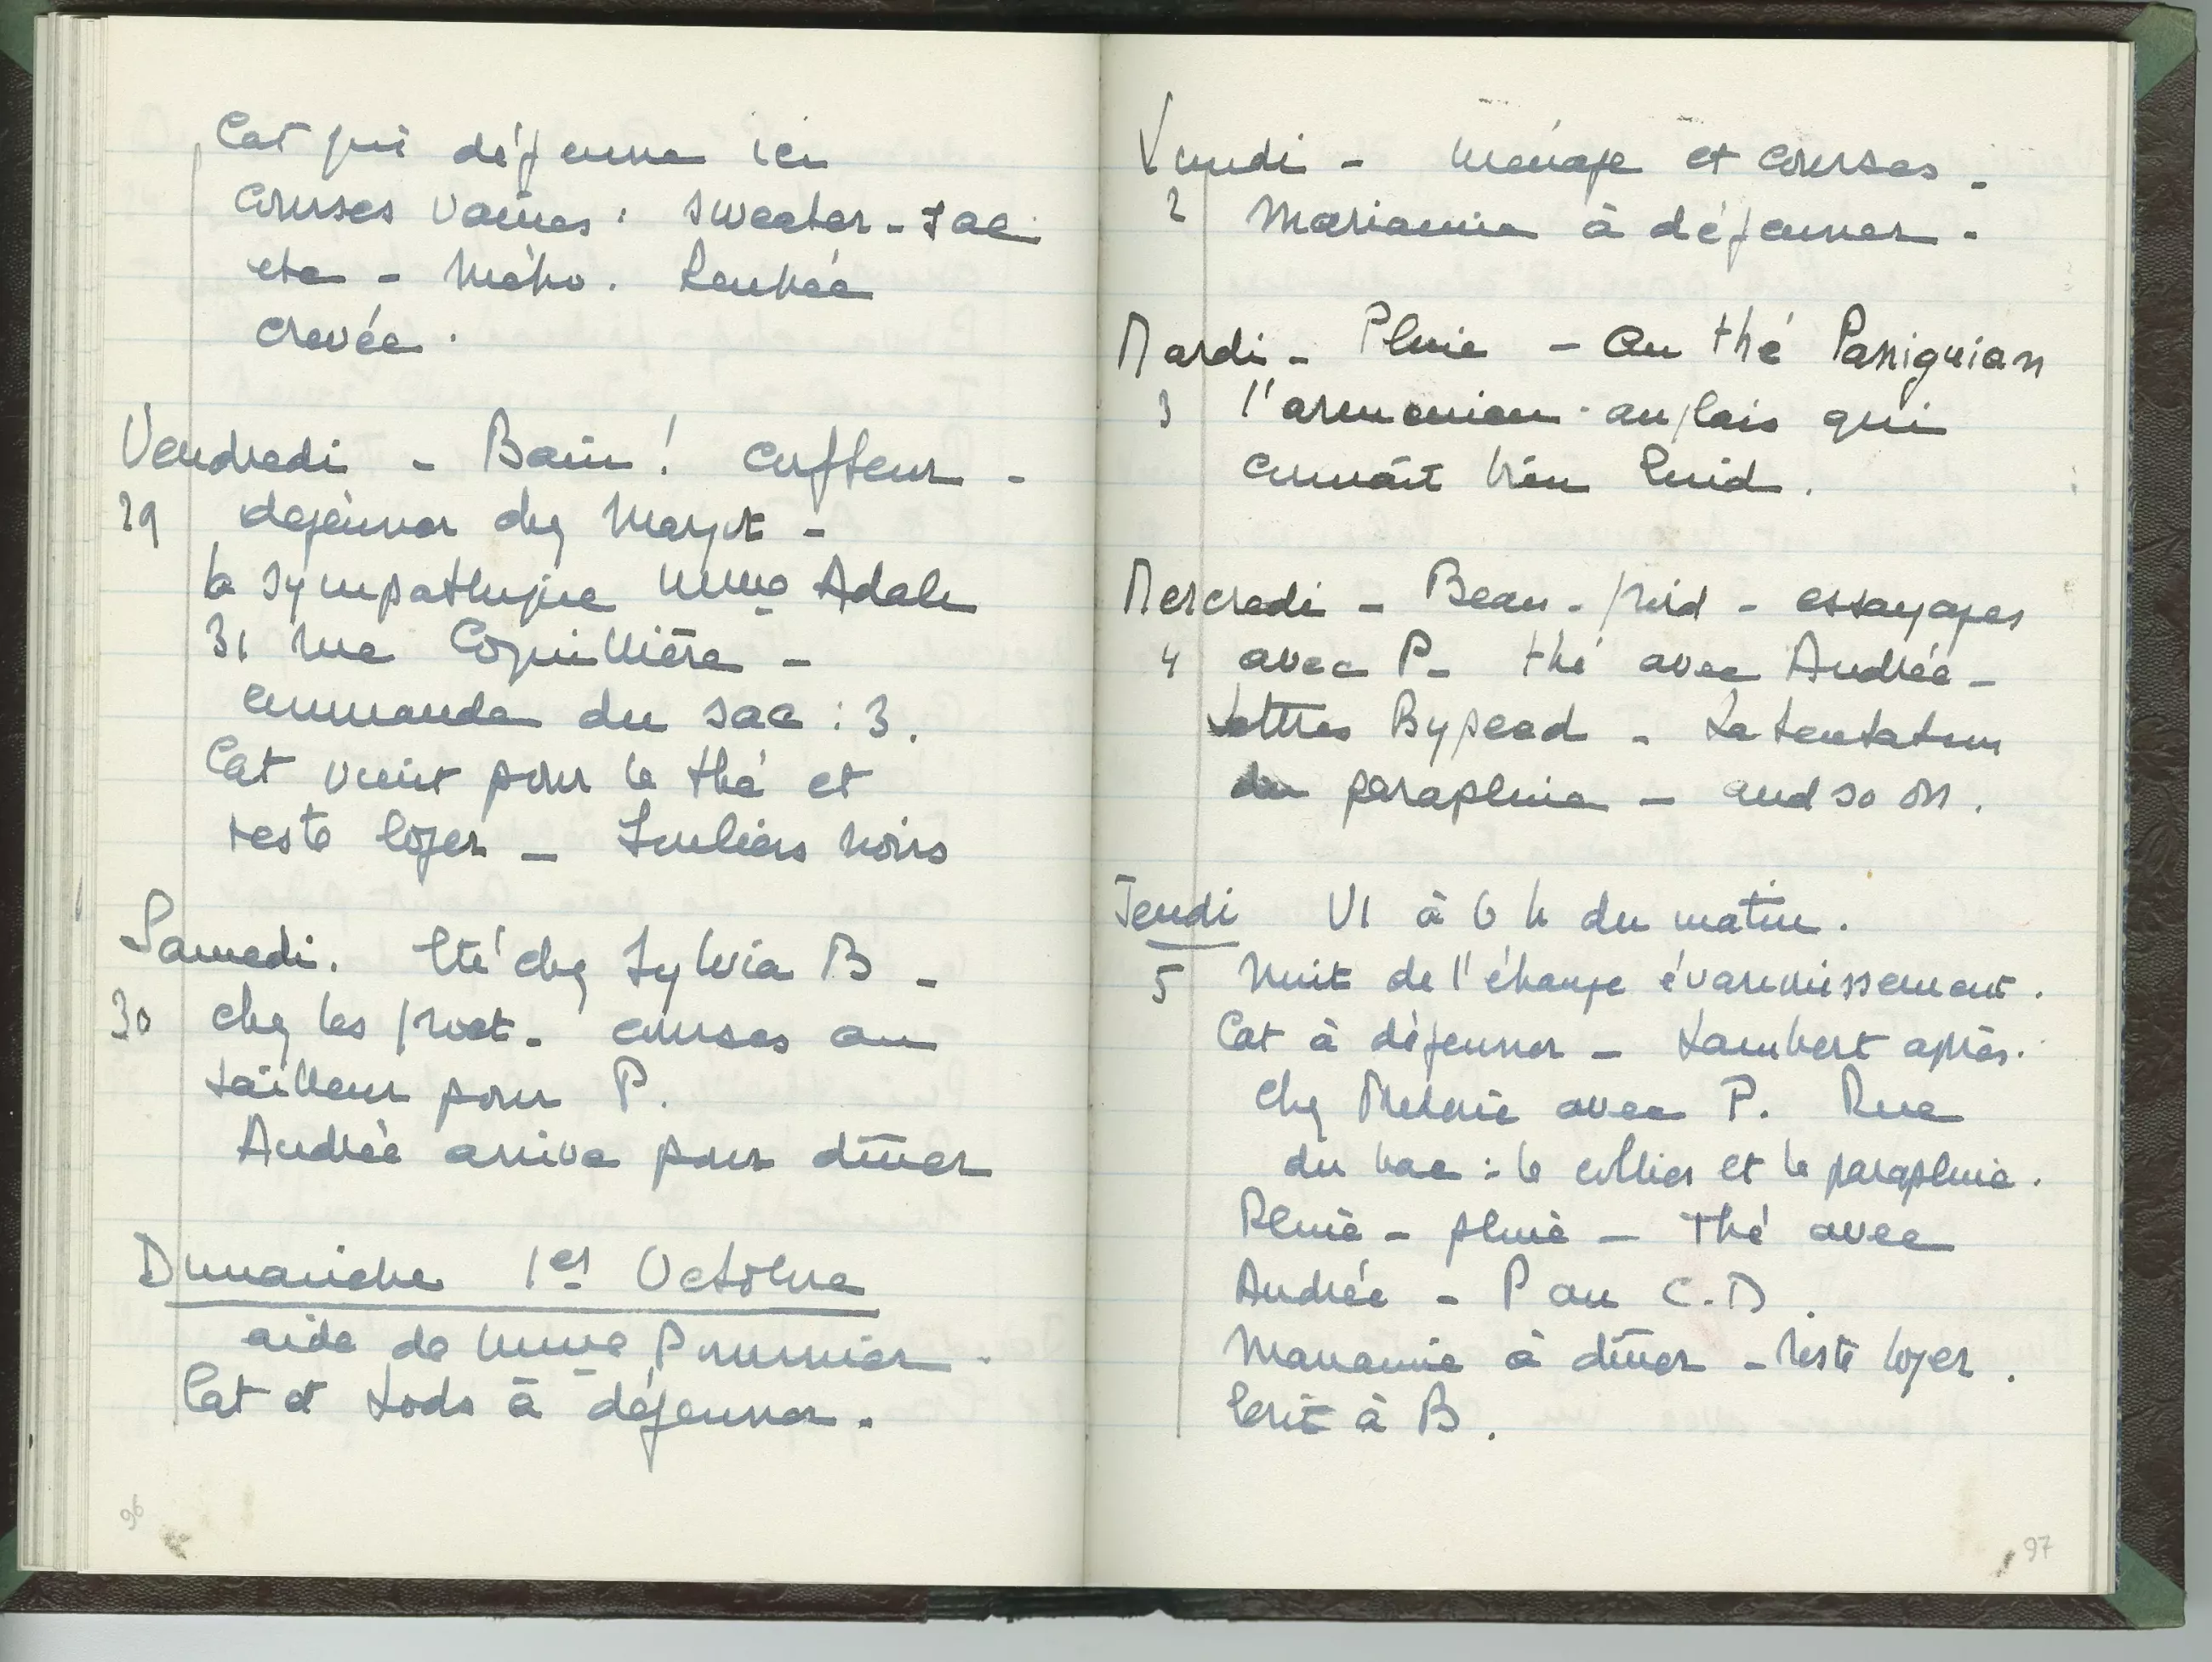 Cat qui déjeune ici
Courses vaines : sweater - sac
etc - métro. Rentrée
crevée.
Vendredi - Bain ! coiffeur -
29 dejeuner chez Margot -
la sympathique Mme Adale
31 rue Coquillière -
commande du sac : 3.
Cat vient pour le thé et
reste loger - Souliers noirs
Samedi. Été chez Sylvia B -
30 chez les courses au
tailleur pour P.
Andrée arrive pour dîner
Dimanche 1er Octobre
aide de Mme Pommier -
Cat et Lods à déjeuner -
96
Lundi - Ménage et courses -
2 Marianne à déjeuner -
Mardi - Pluie - Au thé Paniguian
3 l'armenien-anglais qui
connaît bien Enid.
Mercredi - Beau - froid - essayages
4 avec P - thé avec Andrée -
lettres - La tentation
du parapluie - and so on.
Jeudi V1 à 6 h du matin.
5 Nuit de l'étrange évanouissement.
Cat à déjeuner - Lambert après.
Chez avec P. Rue
du bac : le collier et le parapluie.
Pluie - pluie - Thé avec
Andrée - P au C.D.
Marianne à dîner - reste loger.
Écrit à B.
97